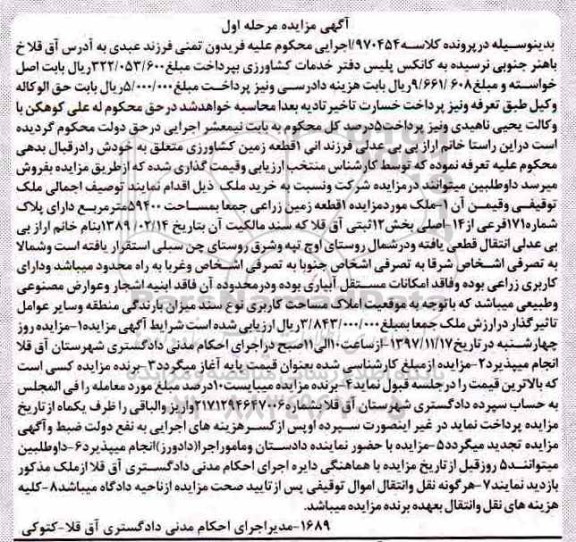 آگهی مزایده مرحله اول
بدینوسیله درپرونده کلاسه ۹۷۰۴۵۴/اجرایی محکوم علیه فریدون تمنی فرزند عبدی به آدرس آق قلا خ
باهنر جنوبی نرسیده به کانکس پلیس دفتر خدمات کشاورزی بپرداخت مبلغ ۳۲۲/۰۵۳/۶۰۰ریال بابت اصل
خواسته و مبلغ ۹/۶۶۱/۶۰۸ریال بابت هزینه دادرسی ونیز پرداخت مبلغ ۵/۰۰۰/۰۰۰ریال بابت حق الوکاله
وکیل طبق تعرفه ونیز پرداخت خسارت تاخیر تادیه بعدا محاسبه خواهدشد درحق محکوم له علی کوهکن با
وکالت یحیی ناهیدی ونیز پرداخت۵درصد کل محکوم به بابت نیمعشر اجرایی درحق دولت محکوم گردیده
است دراین راستا خانم اراز بی بی عدلی فرزند انی ۱قطعه زمین کشاورزی متعلق به خودش رادرقبال بدهی
محکوم علیه تعرفه نموده که توسط کارشناس منتخب ارزیابی وقیمت گذاری شده که ازطریق مزایده بفروش
میرسد داوطلبین میتوانند درمزایده شرکت ونسبت به خرید ملک ذیل اقدام نمایند توصیف اجمالی ملک
توقیفی وقیمن آن ۱-ملک موردمزایده ۱قطعه زمین زراعی جمعا بمساحت ۵۹۴۰۰مترمربع دارای پلاک
شماره۱۷۱فرعی از۱۴-اصلی بخش۱۲ثبتی آق قلا که سند مالکیت آن بتاریخ ۱۳۸۹/۰۲/۱۴بنام خانم اراز بی
بی عدلی انتقال قطعی یافته ودرشمال روستای اوچ تپه وشرق روستای چن سبلی استقرار یافته است وشمالا
به تصرفی اشخاص شرقا به تصرفی اشخاص جنوبا به تصرفی اشخاص وغربا به راه محدود میباشد ودارای
کاربری زراعی بوده وفاقد امکانات مستقل آبیاری بوده ودرمحدوده آن فاقد ابنیه اشجار وعوارض مصنوعی
وطبیعی میباشد که باتوجه به موقعیت املاک مساحت کاربری نوع سند میزان بارندگی منطقه وسایر عوامل
تاثیرگذار درارزش ملک جمعا بمبلغ ۳/۸۴۳/۰۰۰/۰۰۰ریال ارزیابی شده است شرایط آگهی مزایده۱-مزایده روز
چهارشنبه درتاریخ ۱۳۹۷/۱۱/۱۷ازساعت۱۰الی۱۱صبح دراجرای احکام مدنی دادگستری شهرستان آق قلا
انجام میپذیرد۲-مزایده ازمبلغ کارشناسی شده بعنوان قیمت پایه آغاز میگردد۳-برنده مزایده کسی است
که بالاترین قیمت را درجلسه قبول نماید۴-برنده مزایده میبایست۱۰درصد مبلغ مورد معامله را فی المجلس
به حساب سپرده دادگستری شهرستان آق قلا بشماره ۲۱۷۱۲۹۴۶۴۷۰۰۶واریز والباقی را ظرف یکماه ازتاریخ
مزایده پرداخت نماید در غیر اینصورت سپرده اوپس ازکسرهزینه های اجرایی به نفع دولت ضبط وآگهی
مزایده تجدید میگردد۵-مزایده با حضور نماینده دادستان ومامور اجرا(دادورز)انجام میپذیرد۶-داوطلبین
میتوانند۵روزقبل ازتاریخ مزایده با هماهنگی دایره اجرای احکام مدنی دادگستری آق قلا ازملک مذکور
بازدید نمایند۷-هرگونه نقل وانتقال اموال توقیفی پس ازتایید صحت مزایده ازناحیه دادگاه میباشد۸-کلیه
هزینه های نقل وانتقال بعهده برنده مزایده میباشد.
۱۶۸۹-مدیراجرای احکام مدنی دادگستری آق قلا-کتوکی